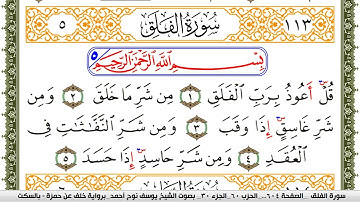 ٥ سُورَةُ الفَلَقِ ١١٣
بِسْمِ اللَّهِ الرَّحْمَٰنِ الرَّحِيمِ ٥
قُلْ أَعُوذُ بِرَبِّ الْفَلَقِ ١ مِن شَرِّ مَا خَلَقَ ٢ وَمِن
شَرِّ غَاسِقٍ إِذَا وَقَبَ ٣ وَمِن شَرِّ النَّفَّٰثَٰتِ فِى
الْعُقَدِ ٤ وَمِن شَرِّ حَاسِدٍ إِذَا حَسَدَ ٥
سورة الفلق _الصفحة ٦٠٤_ الحزب ٦٠_الجزء ٣٠_ بصوت الشيخ يوسف نوح أحمد _برواية خلف عن حمزة - بالسكت